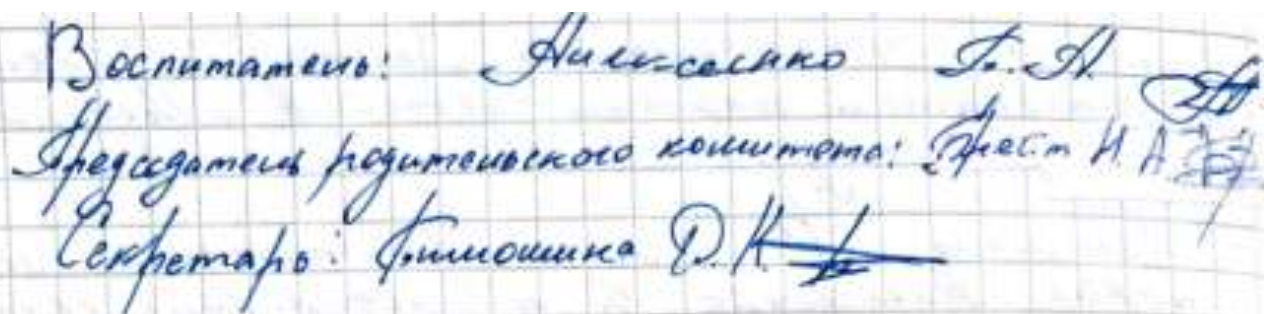 Воспитатель: Алексеенко Т. А.
Председатель родительского комитета: Н. А.
Секретарь: Тимошина Д. К.